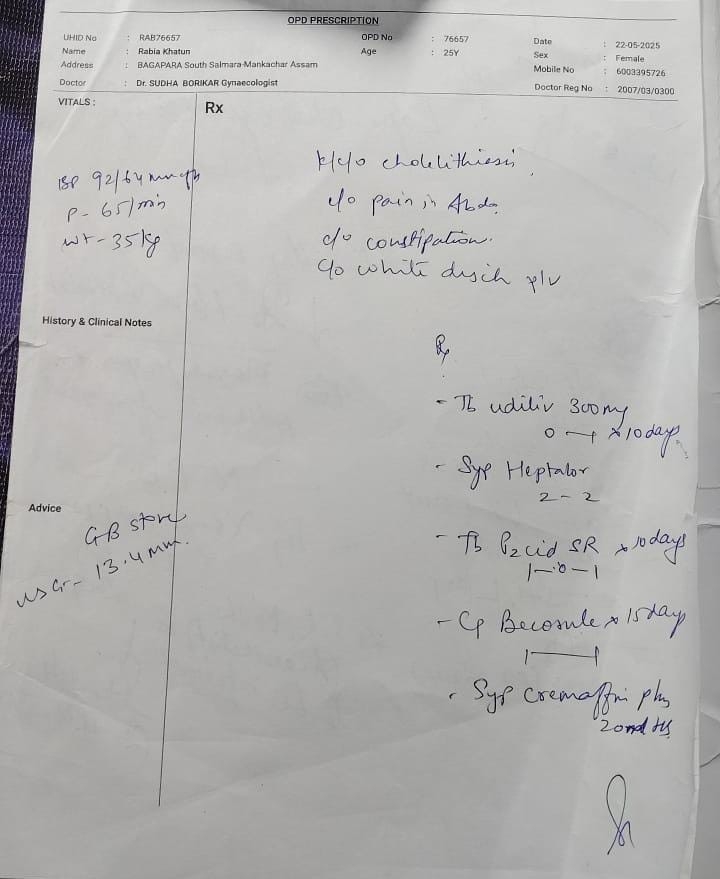 OPD PRESCRIPTION
UHID No : RAB76657 OPD No : 76657 Date : 22-05-2025
Name : Rabia Khatun Age : 25Y Sex : Female
Address : BAGAPARA South Salmara-Mankachar Assam Mobile No : 6003395726
Doctor : Dr. SUDHA BORIKAR Gynaecologist Doctor Reg No : 2007/03/0300
VITALS :
Rx
BP 92/64 mmHg
P- 65/min
wt- 35kg
K/c/o cholelithiasis
c/o pain in Abdo.
c/o constipation.
c/o white disch p/v
History & Clinical Notes
Rx
- Tb udiliv 300mg
0 — 1 x 10 days
- Syp Heptalor
2 - 2
- Tb P2cid SR x 10 days
1-0-1
- Cp Becosule x 15 day
1 — 1
- Syp cremaffin plus
20ml HS
Advice
GB stone
USG- 13.4mm.